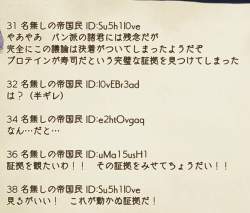 31 名無しの帝国民 ID:Su5h1l0ve
やあやあ　パン派の諸君には残念だが
完全にこの議論は決着がついてしまったようだぞ
プロテインが寿司だという完璧な証拠を見つけてしまった
32 名無しの帝国民 ID:l0vEBr3ad
は？（半ギレ）
34 名無しの帝国民 ID:e2htOvgaq
なん…だと…
36 名無しの帝国民 ID:uMa15usH1
証拠を観たいわ！！　その証拠をみせてちょうだい！！
38 名無しの帝国民 ID:Su5h1l0ve
見るがいい！　これが動かぬ証拠だ！